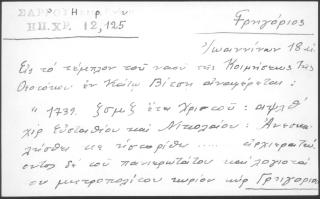 ΗΠ.ΧΡ. 12, 125
Γρηγόριος
Ἰωαννίνων 18 αἰ.
Εἰς τὸ τέμπλον τοῦ ναοῦ τῆς Κοιμήσεως τῆς
Θεοτόκου ἐν Κάτω Βίτσῃ ἀναφέρεται:
" 1739. ζσμζ ἔτει Χριστοῦ: αψλθ'
χὶρ Εὐσταθίου καὶ Νικολάου: Ἀνεκα-
..... ἀρχιερατεύ-
οντος δὲ τοῦ πανιερωτάτου καὶ λογιωτά-
ου μητροπολίτου κυρίου κὺρ Γρηγορίου